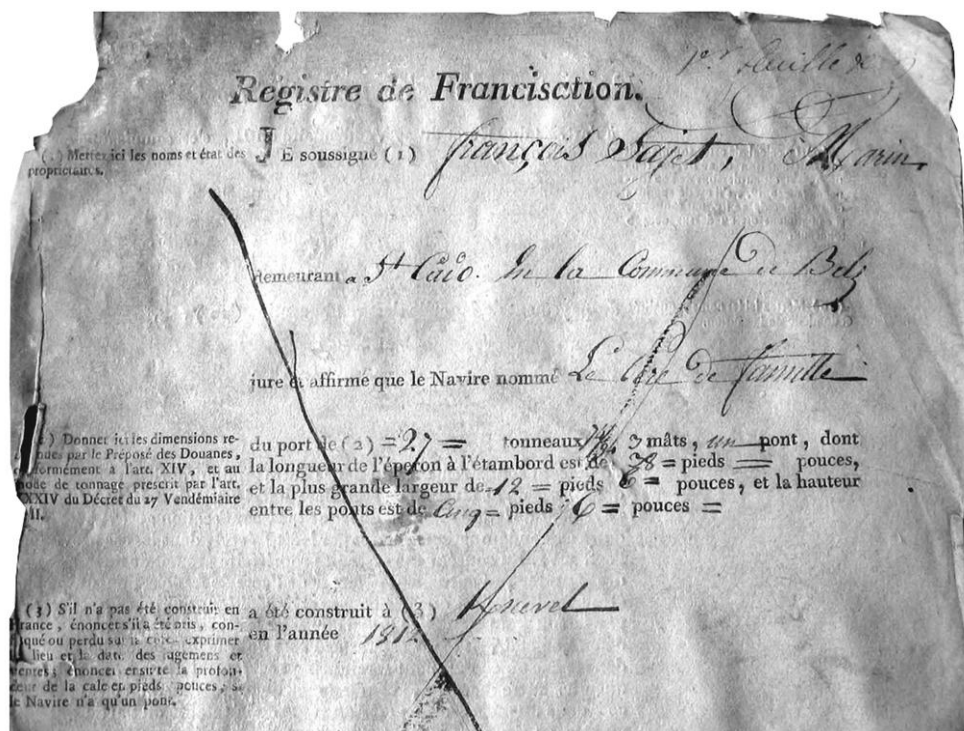 1er feuille
Registre de Francisation.
(1) Mettez ici les noms et état des
propriétaires.
JE soussigné (1) françois Sajet, Marin,
demeurant a St Cado. En la Commune de Belz
jure et affirmé que le Navire nommé Le Père de famille
(2) Donner ici les dimensions re-
par le Préposé des Douanes,
à l'art. XIV, et au
mode de tonnage prescrit par l'art.
XXXIV du Décret du 27 Vendémiaire
II.
du port de (2) = 27 = tonneaux 3 mâts, un pont, dont
la longueur de l'éperon à l'étambord est de 38 = pieds = pouces,
et la plus grande largeur de 12 = pieds 6 = pouces, et la hauteur
entre les ponts est de Cinq = pieds 6 = pouces =
(3) S'il n'a pas été construit en
France, énoncer s'il a été pris, con-
qué ou perdu sur exprimer
lieu et la date des jugemens et
ventes; énoncer ensuite la profon-
deur de la cale et pieds pouces, si
le Navire n'a qu'un pont.
a été construit à (3)
en l'année 1812